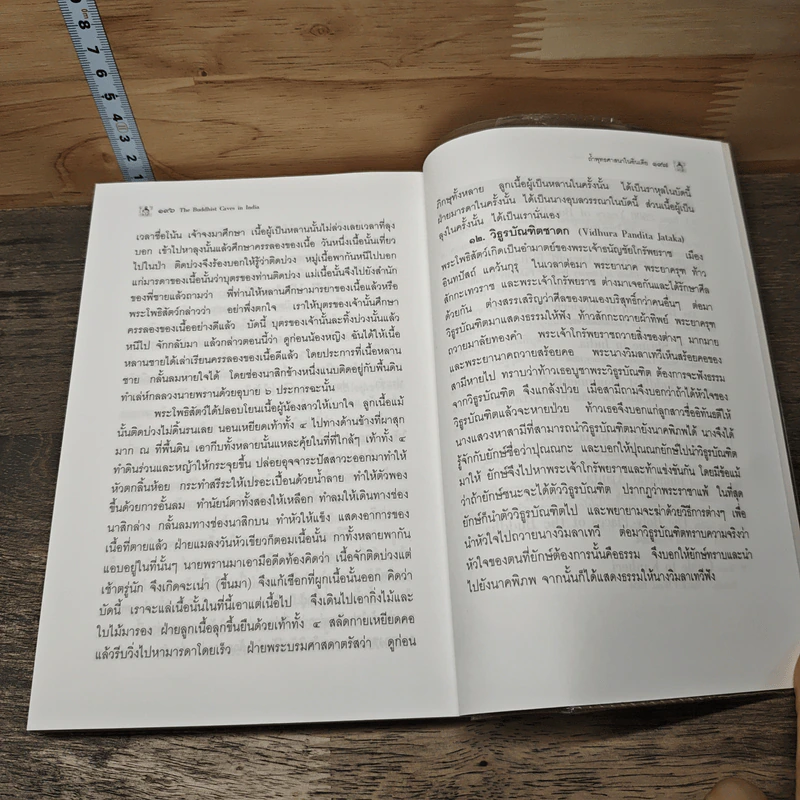 8 7 6 5 4 3 2 1
๑๙๖ The Buddhist Caves in India
เวลาชื่อโน้น เจ้าจงมาศึกษา เนื้อผู้เป็นหลานนั้นไม่ล่วงเลยเวลาที่ลุง
บอก เข้าไปหาลุงนั้นแล้วศึกษาครรลองของเนื้อ วันหนึ่งเนื้อนั้นเที่ยว
ไปในป่า ติดบ่วงจึงร้องบอกให้รู้ว่าติดบ่วง หมู่เนื้อพากันหนีไปบอก
แก่มารดาของเนื้อนั้นว่าบุตรของท่านติดบ่วง แม่เนื้อนั้นจึงไปยังสำนัก
ของพี่ชายแล้วถามว่า พี่ท่านให้หลานศึกษามารยาของเนื้อแล้วหรือ
พระโพธิสัตว์กล่าวว่า อย่าพึ่งตกใจ เราให้บุตรของเจ้านั้นศึกษา
ครรลองของเนื้ออย่างดีแล้ว บัดนี้ บุตรของเจ้านั้นละทิ้งบ่วงนั้นแล้ว
หนีไป จักกลับมา แล้วกล่าวตอนนี้ว่า ดูก่อนน้องหญิง ฉันได้ให้เนื้อ
หลานชายได้เล่าเรียนครรลองของเนื้อดีแล้ว โดยประการที่เนื้อหลาน
ชาย กลั้นลมหายใจได้ โดยช่องนาสิกข้างหนึ่งแนบติดอยู่กับพื้นดิน
ทำเล่ห์กลลวงนายพรานด้วยอุบาย ๖ ประการฉะนั้น
พระโพธิสัตว์ได้ปลอบโยนเนื้อผู้น้องสาวให้เบาใจ ลูกเนื้อแม้
นั้นติดบ่วงไม่ดิ้นรนเลย นอนเหยียดเท้าทั้ง ๔ ไปทางด้านข้างที่ผาสุก
มาก ณ ที่พื้นดิน เอากีบทั้งหลายนั้นแหละคุ้ยในที่ที่ใกล้ๆ เท้าทั้ง ๔
ทำดินร่วนและหญ้าให้กระจุยขึ้น ปล่อยอุจจาระปัสสาวะออกมาทำให้
หัวตกลิ้นห้อย กระทำสรีระให้เปรอะเปื้อนด้วยน้ำลาย ทำให้ตัวพอง
ขึ้นด้วยการอั้นลม ทำนัยน์ตาทั้งสองให้เหลือก ทำลมให้เดินทางช่อง
นาสิกล่าง กลั้นลมทางช่องนาสิกบน ทำหัวให้แข็ง แสดงอาการของ
เนื้อที่ตายแล้ว ฝ่ายแมลงวันหัวเขียวก็ตอมเนื้อนั้น กาทั้งหลายพากัน
แอบอยู่ในที่นั้นๆ นายพรานมาเอามือดีดท้องคิดว่า เนื้อจักติดบ่วงแต่
เช้าตรู่นัก จึงเกิดจะเน่า (ขึ้นมา) จึงแก้เชือกที่ผูกเนื้อนั้นออก คิดว่า
บัดนี้ เราจะแล่เนื้อนั้นในที่นี้เอาแต่เนื้อไป จึงเดินไปเอากิ่งไม้และ
ใบไม้มารอง ฝ่ายลูกเนื้อลุกขึ้นยืนด้วยเท้าทั้ง ๔ สลัดกายเหยียดคอ
แล้วรีบวิ่งไปหามารดาโดยเร็ว ฝ่ายพระบรมศาสดาตรัสว่า ดูก่อน
ถ้ำพุทธศาสนาในอินเดีย
ภิกษุทั้งหลาย ลูกเนื้อผู้เป็นหลานในครั้งนั้น ได้เป็นราหุลในบัดนี้
ฝ่ายมารดาในครั้งนั้น ได้เป็นนางอุบลวรรณาในบัดนี้ ส่วนเนื้อผู้เป็น
ลุงในครั้งนั้น ได้เป็นเรานั่นเอง
๑๒. วิธูรบัณฑิตชาดก (Vidhura Pandita Jataka)
พระโพธิสัตว์เกิดเป็นอำมาตย์ของพระเจ้าธนัญชัยโกรัพราช เมือง
อินทปัสถ์ แคว้นกุรุ ในเวลาต่อมา พระยานาค พระยาครุฑ ท้าว
สักกะเทวราช และพระเจ้าโกรัพราชได้ ต่างมาเจอกันและได้รักษาศีล
ด้วยกัน ต่างสรรเสริญว่าศีลของตนเองบริสุทธิ์กว่าคนอื่นๆ ต่อมา
วิธูรบัณฑิตมาแสดงธรรมให้ฟัง ท้าวสักกะถวายผ้าทิพย์ พระยาครุฑ
ถวายมาลัยทองคำ พระเจ้าโกรัพราชถวายสิ่งของต่างๆ มากมาย
และพระยานาคถวายสร้อยคอ พระนางวิมลาเทวีเห็นสร้อยคอของ
สามีหายไป ทราบว่าท้าวเธอบูชาพระวิธูรบัณฑิต ต้องการจะฟังธรรม
จากวิธูรบัณฑิต จึงแกล้งป่วย เมื่อสามีถามจึงบอกว่าถ้าได้หัวใจของ
วิธูรบัณฑิตแล้วจะหายป่วย ท้าวเธอจึงบอกแก่ลูกสาวชื่ออิทันธตีให้
นางแสวงหาสามีที่สามารถนำวิธูรบัณฑิตมายังนาคพิภพได้ นางจึงได้
รู้จักกับยักษ์ชื่อว่าปุณณกะ และบอกให้ปุณณกยักษ์ไปนำวิธูรบัณฑิต
มาให้ ยักษ์จึงไปหาพระเจ้าโกรัพราชและท้าแข่งขันกัน โดยมีข้อแม้
ว่าถ้ายักษ์ชนะจะได้ตัววิธูรบัณฑิต ปรากฏว่าพระราชาแพ้ ในที่สุด
ยักษ์ก็นำตัววิธูรบัณฑิตไป และพยายามจะฆ่าด้วยวิธีการต่างๆ เพื่อ
นำหัวใจไปถวายนางวิมลาเทวี ต่อมาวิธูรบัณฑิตทราบความจริงว่า
หัวใจของตนที่ยักษ์ต้องการนั้นคือธรรม จึงบอกให้ยักษ์ทราบและนำ
ไปยังนาคพิภพ จากนั้นก็ได้แสดงธรรมให้นางวิมลาเทวีฟัง